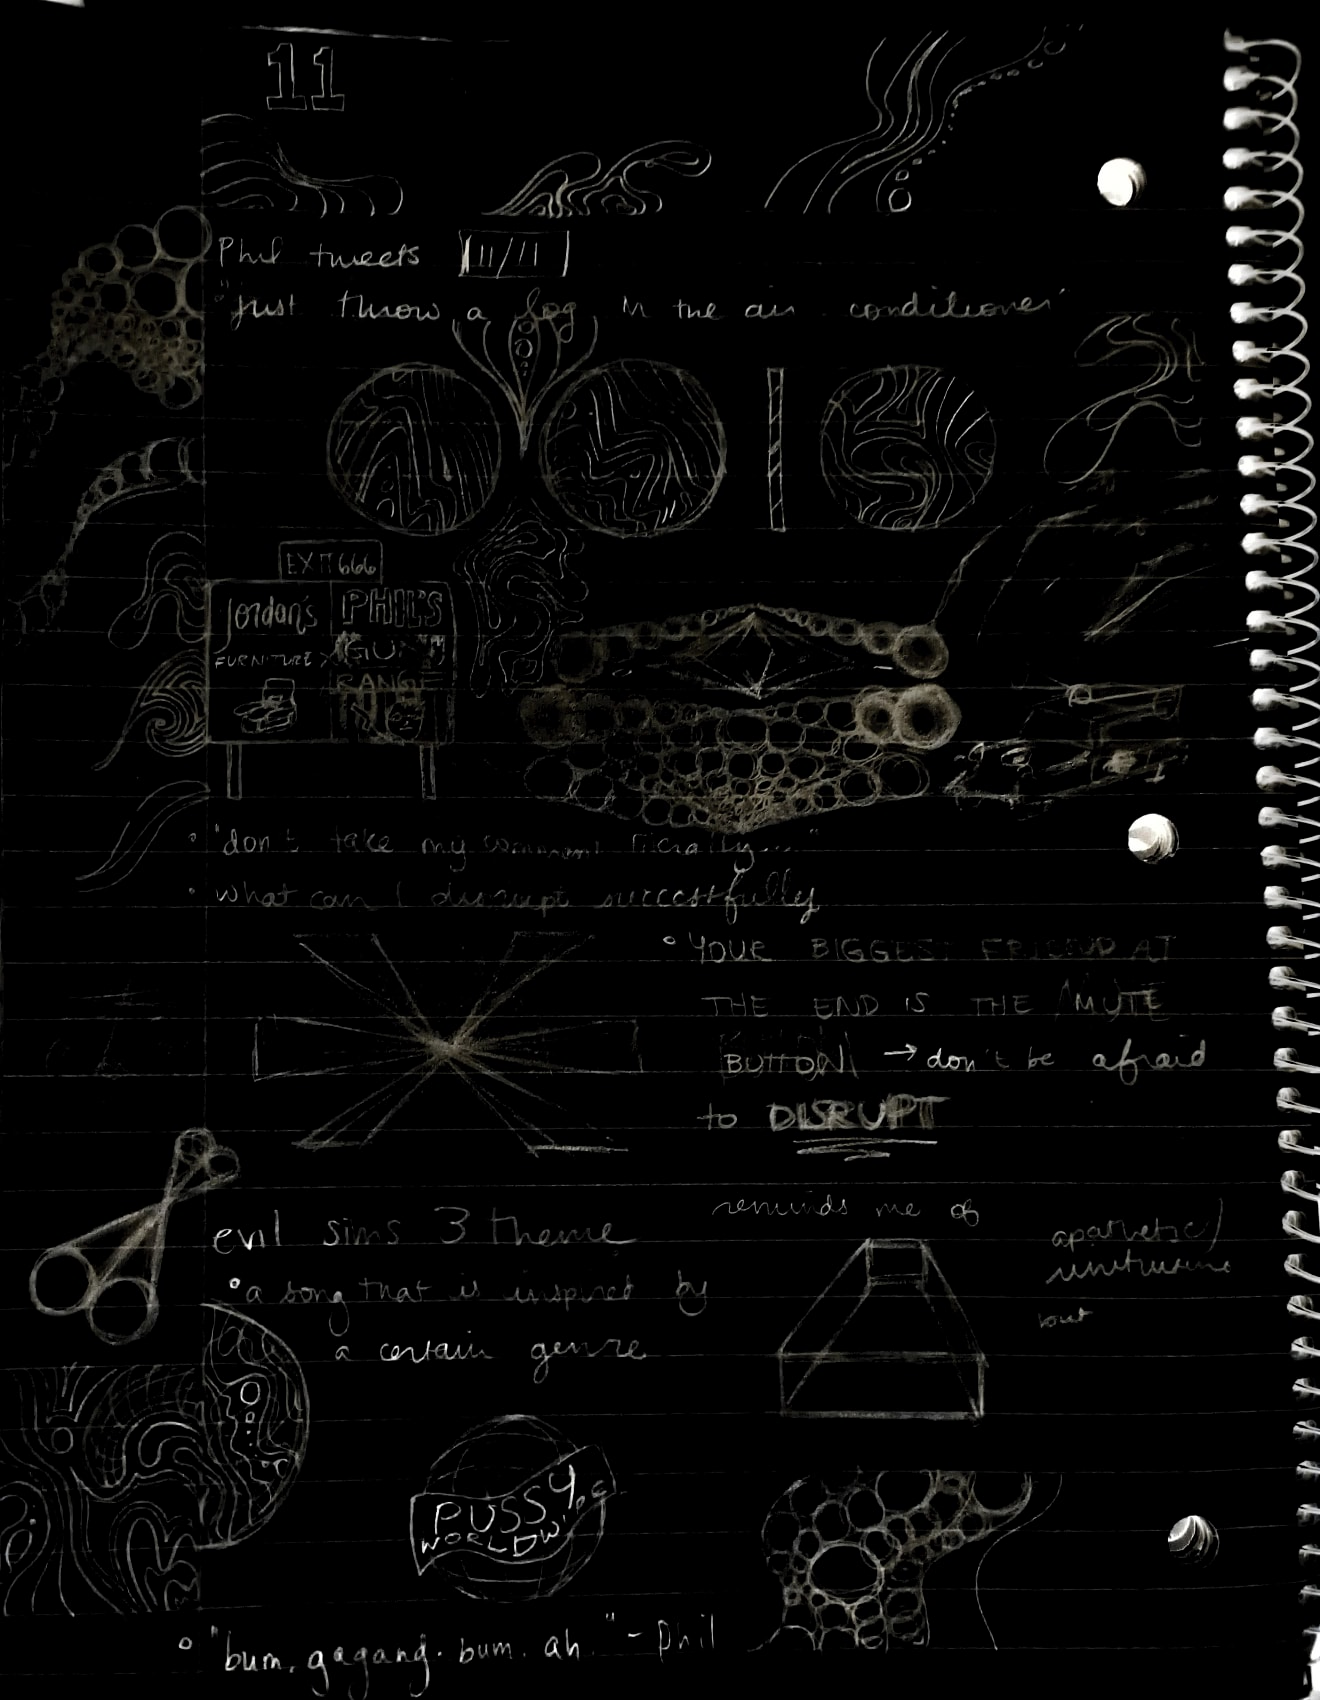 11
Phil tweets 11/11
"just throw a log in the air conditioner"
EXIT 666
Jordan's
FURNITURE
PHIL'S
GUN
RANGE
• "don't take my comment literally...."
• what can I disrupt successfully
• YOUR BIGGEST FRIEND AT
THE END IS THE MUTE
BUTTON → don't be afraid
to DISRUPT
evil sims 3 theme
• a song that is inspired by
a certain genre
reminds me of
apathetic/
PUSSY
WORLDW
• "bum. gagang. bum. ah." - Phil